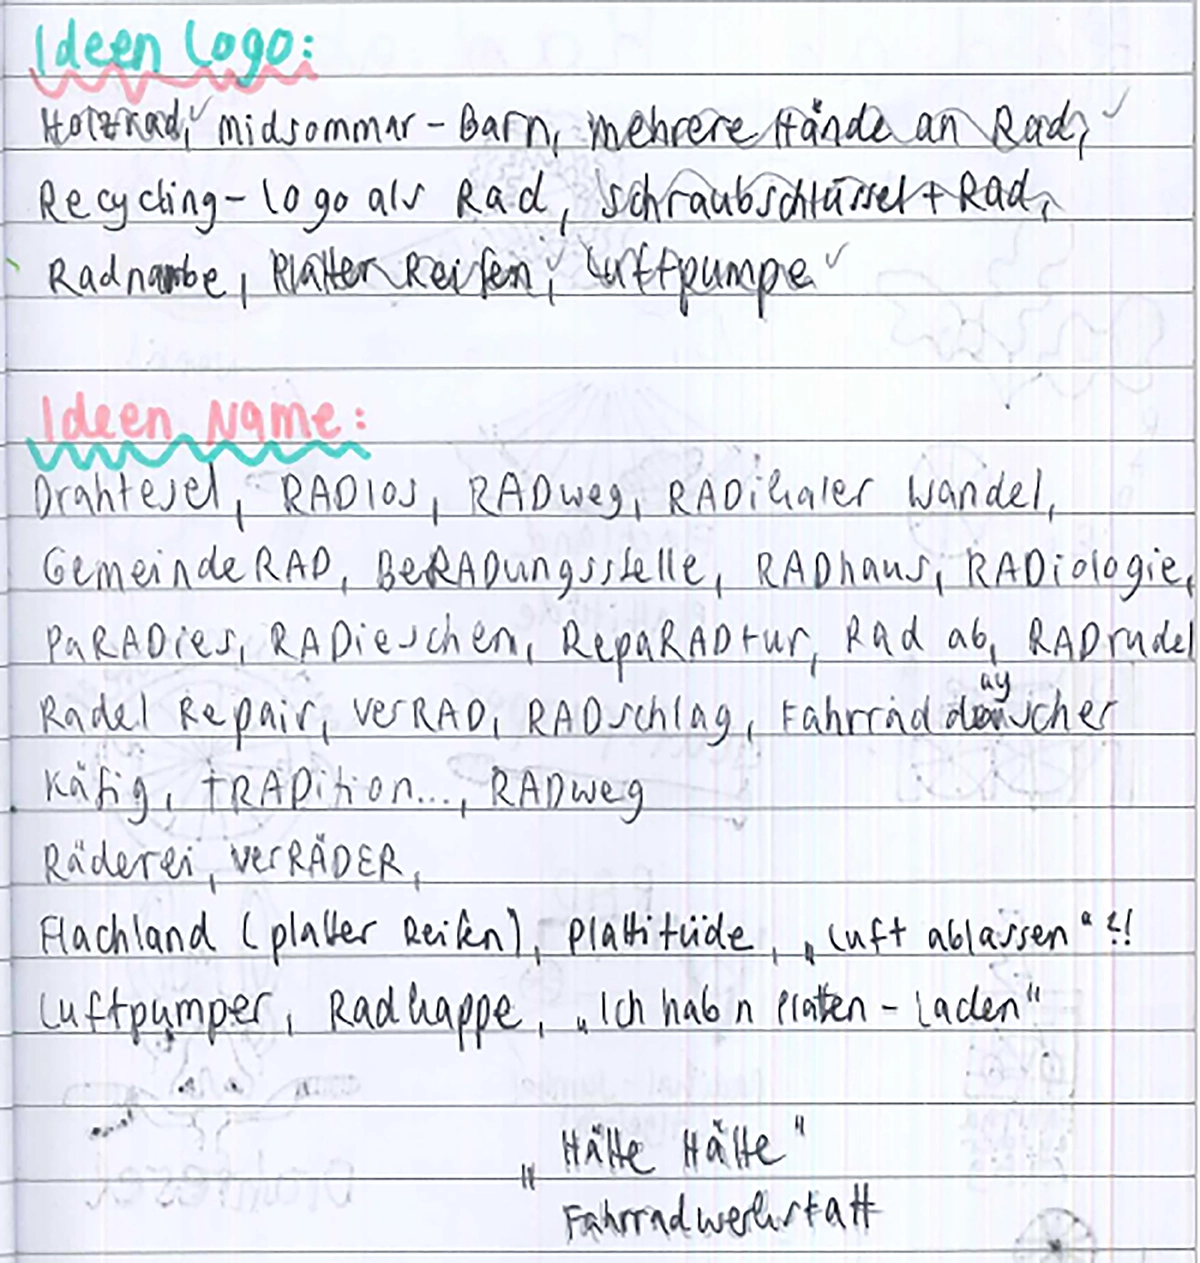 Ideen Logo:
Holzrad, midsommar-Barn, mehrere Hände an Rad,
Recycling-logo als Rad, Schraubschlüssel + Rad,
Radnabe, Platter Reifen, Luftpumpe
Ideen Name:
Drahtesel, RADlos, RADweg, RADikaler Wandel,
GemeindeRAD, BeRADungsstelle, RADhaus, RADiologie,
PaRADies, RADieschen, RepaRADtur, Rad ab, RADrudel
Radel Repair, verRAD, RADschlag, Fahrrad
ay
Käfig, tRADition..., RADweg
Räderei, verRÄDER,
Flachland (platter Reifen), Plattitüde, „Luft ablassen“ ?!
Luftpumper, Radkappe, „Ich hab n Platten-Laden“
„Hätte Hätte“
Fahrradwerkstatt